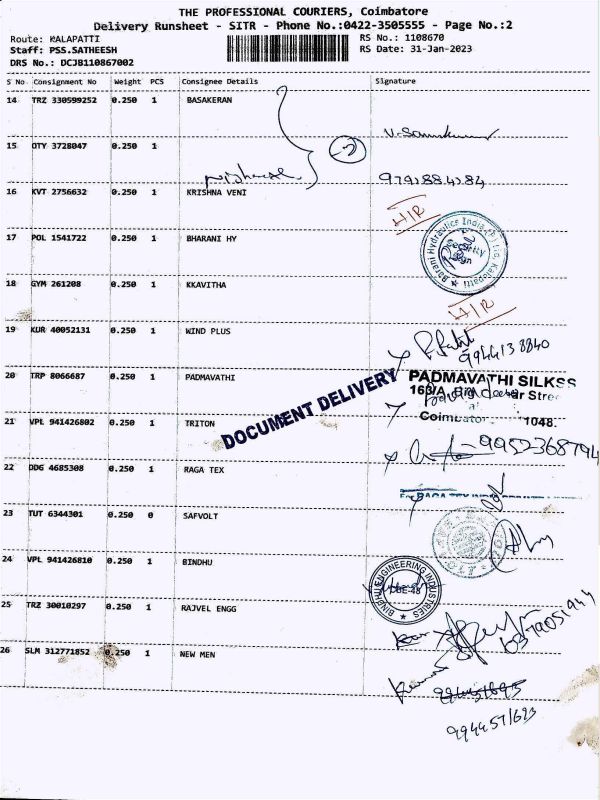 THE PROFESSIONAL COURIERS, Coimbatore
Delivery Runsheet - SITR - Phone No.:0422-3505555 - Page No.:2
Route: KALAPATTI
RS No.: 1108670
Staff: PSS.SATHEESH
RS Date: 31-Jan-2023
DRS No.: DCJB110867002
S No Consignment No Weight PCS Consignee Details Signature
14 TRZ 330599252 0.250 1 BASAKERAN
15 OTY 3728047 0.250 1
9791884284
16 KVT 2756632 0.250 1 KRISHNA VENI
H/R
17 POL 1541722 0.250 1 BHARANI HY
Barani Hydraulics India (P) Ltd, Kalapatti
Security
Sign
18 GYM 261208 0.250 1 KKAVITHA
H/R
19 KUR 40052131 0.250 1 WIND PLUS
9944138840
20 TRP 8066687 0.250 1 PADMAVATHI
DOCUMENT DELIVERY
PADMAVATHI SILKSS
163/A
ar Stree
Coimbator 1048.
21 VPL 941426802 0.250 1 TRITON
9952368794
22 DDG 4685308 0.250 1 RAGA TEX
For RAGA TEX INDIA
23 TUT 6344301 0.250 0 SAFVOLT
24 VPL 941426810 0.250 1 BINDHU
BINDHU ENGINEERING INDUSTRIES
CBE-48
25 TRZ 30010297 0.250 1 RAJVEL ENGG
26 SLM 312771852 0.250 1 NEW MEN
994451623